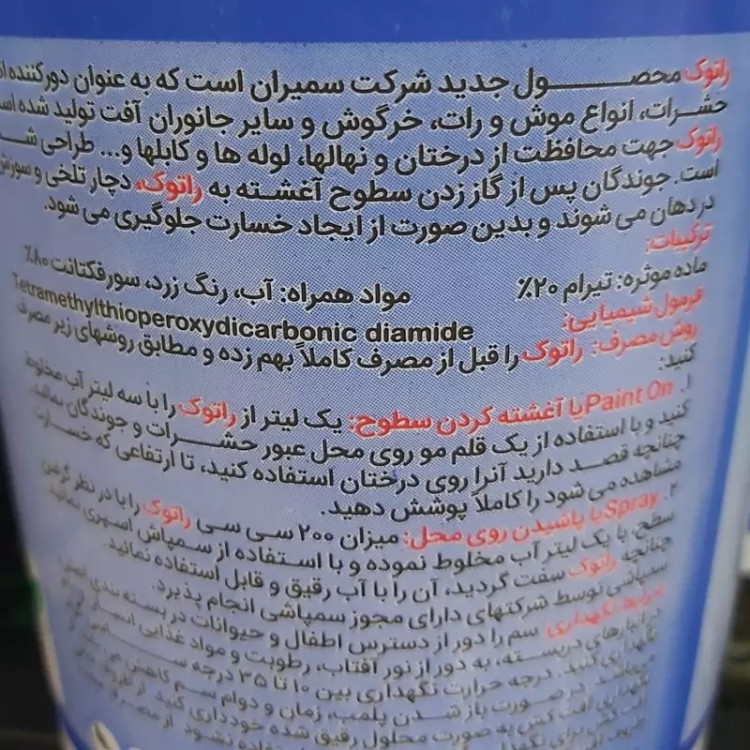 راتوک محصول جدید شرکت سمیران است که به عنوان دورکننده
حشرات، انواع موش و رات، خرگوش و سایر جانوران آفت تولید شده
راتوک جهت محافظت از درختان و نهالها، لوله ها و کابلها و... طراحی
است. جوندگان پس از گاز زدن سطوح آغشته به راتوک، دچار تلخی و سوزش
در دهان می شوند و بدین صورت از ایجاد خسارت جلوگیری می شود.
ترکیبات:
ماده موثره: تیرام ۲۰٪ مواد همراه: آب، رنگ زرد، سورفکتانت ۸۰٪
فرمول شیمیایی: Tetramethylthioperoxydicarbonic diamide
روش مصرف: راتوک را قبل از مصرف کاملاً بهم زده و مطابق روشهای زیر مصرف
کنید:
۱. Paint On یا آغشته کردن سطوح: یک لیتر از راتوک را با سه لیتر آب مخلوط
کنید و با استفاده از یک قلم مو روی محل عبور حشرات و جوندگان بمالید.
چنانچه قصد دارید آنرا روی درختان استفاده کنید، تا ارتفاعی که خسارت
مشاهده می شود را کاملاً پوشش دهید.
۲. Spray یا پاشیدن روی محل: میزان ۲۰۰ سی سی راتوک را با در نظر گرفتن
سطح، با یک لیتر آب مخلوط نموده و با استفاده از سمپاش اسپری نمائید.
چنانچه راتوک سفت گردید، آن را با آب رقیق و قابل استفاده نمائید.
سمپاشی توسط شرکتهای دارای مجوز سمپاشی انجام پذیرد.
شرایط نگهداری: سم را دور از دسترس اطفال و حیوانات در بسته بندی اصلی
در انبارهای دربسته، به دور از نور آفتاب، رطوبت و مواد غذایی انسان
نگهداری کنید. درجه حرارت نگهداری بین ۱۰ تا ۳۵ درجه
در صورت باز شدن پلمب، زمان و دوام سم کاهش می
نگهداری آفت کش به صورت محلول رقیق شده خودداری کنید. از